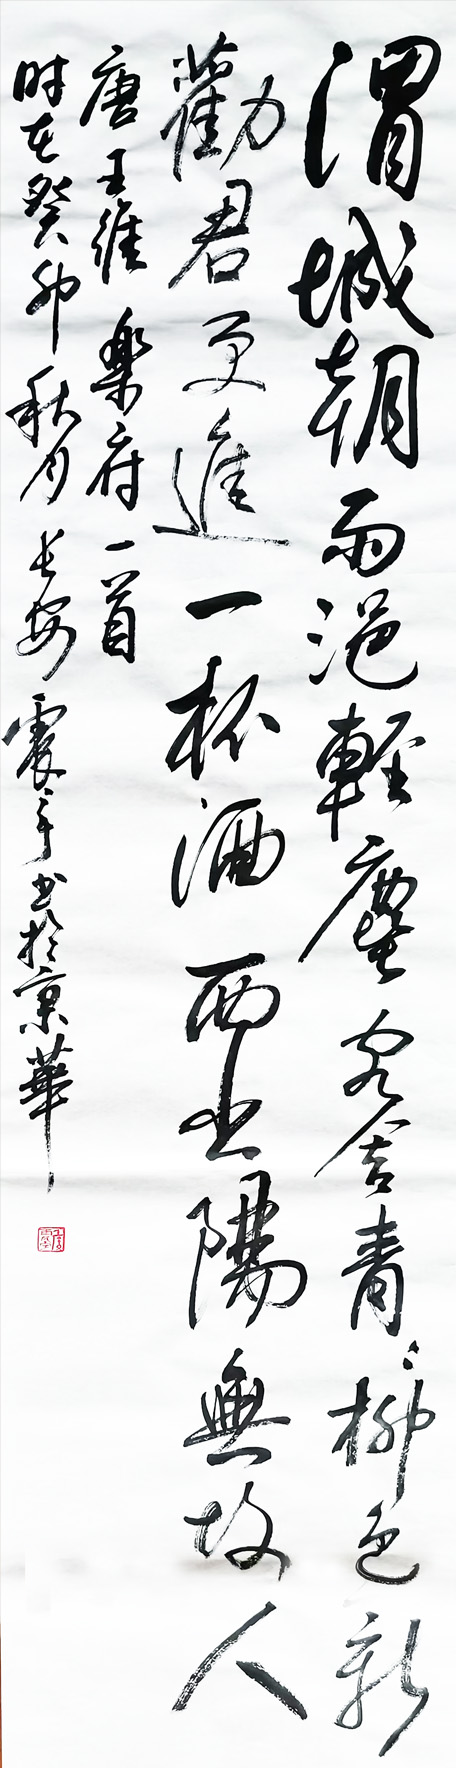 渭城朝雨浥輕塵客舍青〻柳色新
勸君更進一杯酒西出陽無故人
唐王維樂府一首
時在癸卯秋月長安震宇書於京華